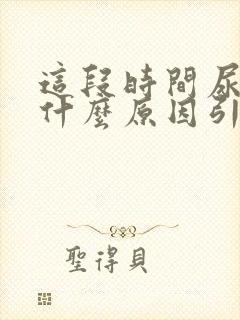 這段時間尿
什麼原因引
聖得貝